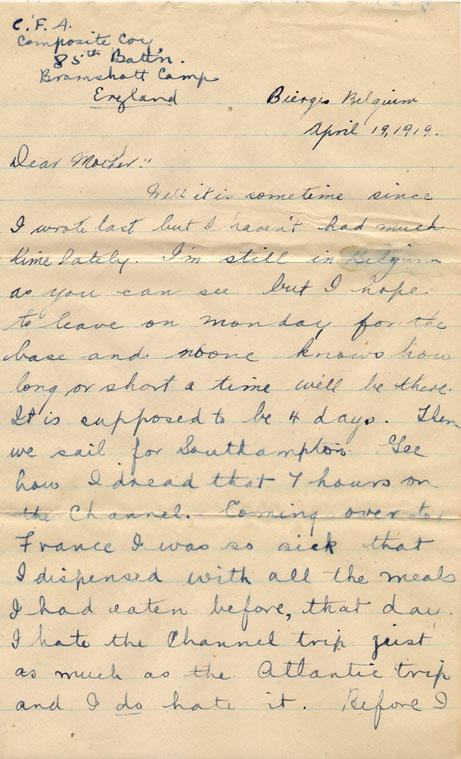 C.F.A.
Composite Coy
85th Batt'n.
Bramshott Camp
England
Bierges Belgium
April 19, 1919.
Dear Mother:
Well it is sometime since
I wrote last but I haven't had much
time lately. I'm still in Belgium
as you can see but I hope
to leave on monday for the
base and noone knows how
long or short a time we'll be there.
It is supposed to be 4 days. Then
we sail for Southampton. Gee
how I dread that 7 hours on
the Channel. Coming over to
France I was so sick that
I dispensed with all the meals
I had eaten before, that day.
I hate the Channel trip just
as much as the Atlantic trip
and I do hate it. Before I